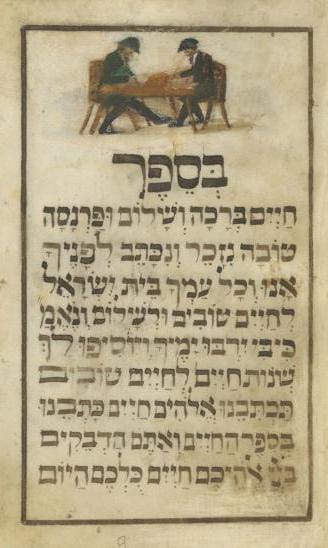 בְּסֵפֶר
חַיִּים בְּרָכָה וְשָׁלוֹם וּפַרְנָסָה
טוֹבָה נִזָּכֵר וְנִכָּתֵב לְפָנֶיךָ
אָנוּ וְכָל עַמְּךָ בֵּית יִשְׂרָאֵל
לְחַיִּים טוֹבִים וּלְשָׁלוֹם וְנֶאֱמַ
כִּי בִי יִרְבּוּ יָמֶיךָ וְיוֹסִיפוּ לְךָ
שְׁנוֹת חַיִּים לְחַיִּים טוֹבִים
תִּכְתְּבֵנוּ אֱלֹהִים חַיִּים כָּתְבֵנוּ
בְּסֵפֶר הַחַיִּים וְאַתֶּם הַדְּבֵקִים
אֱלֹהֵיכֶם חַיִּים כֻּלְּכֶם הַיּוֹם